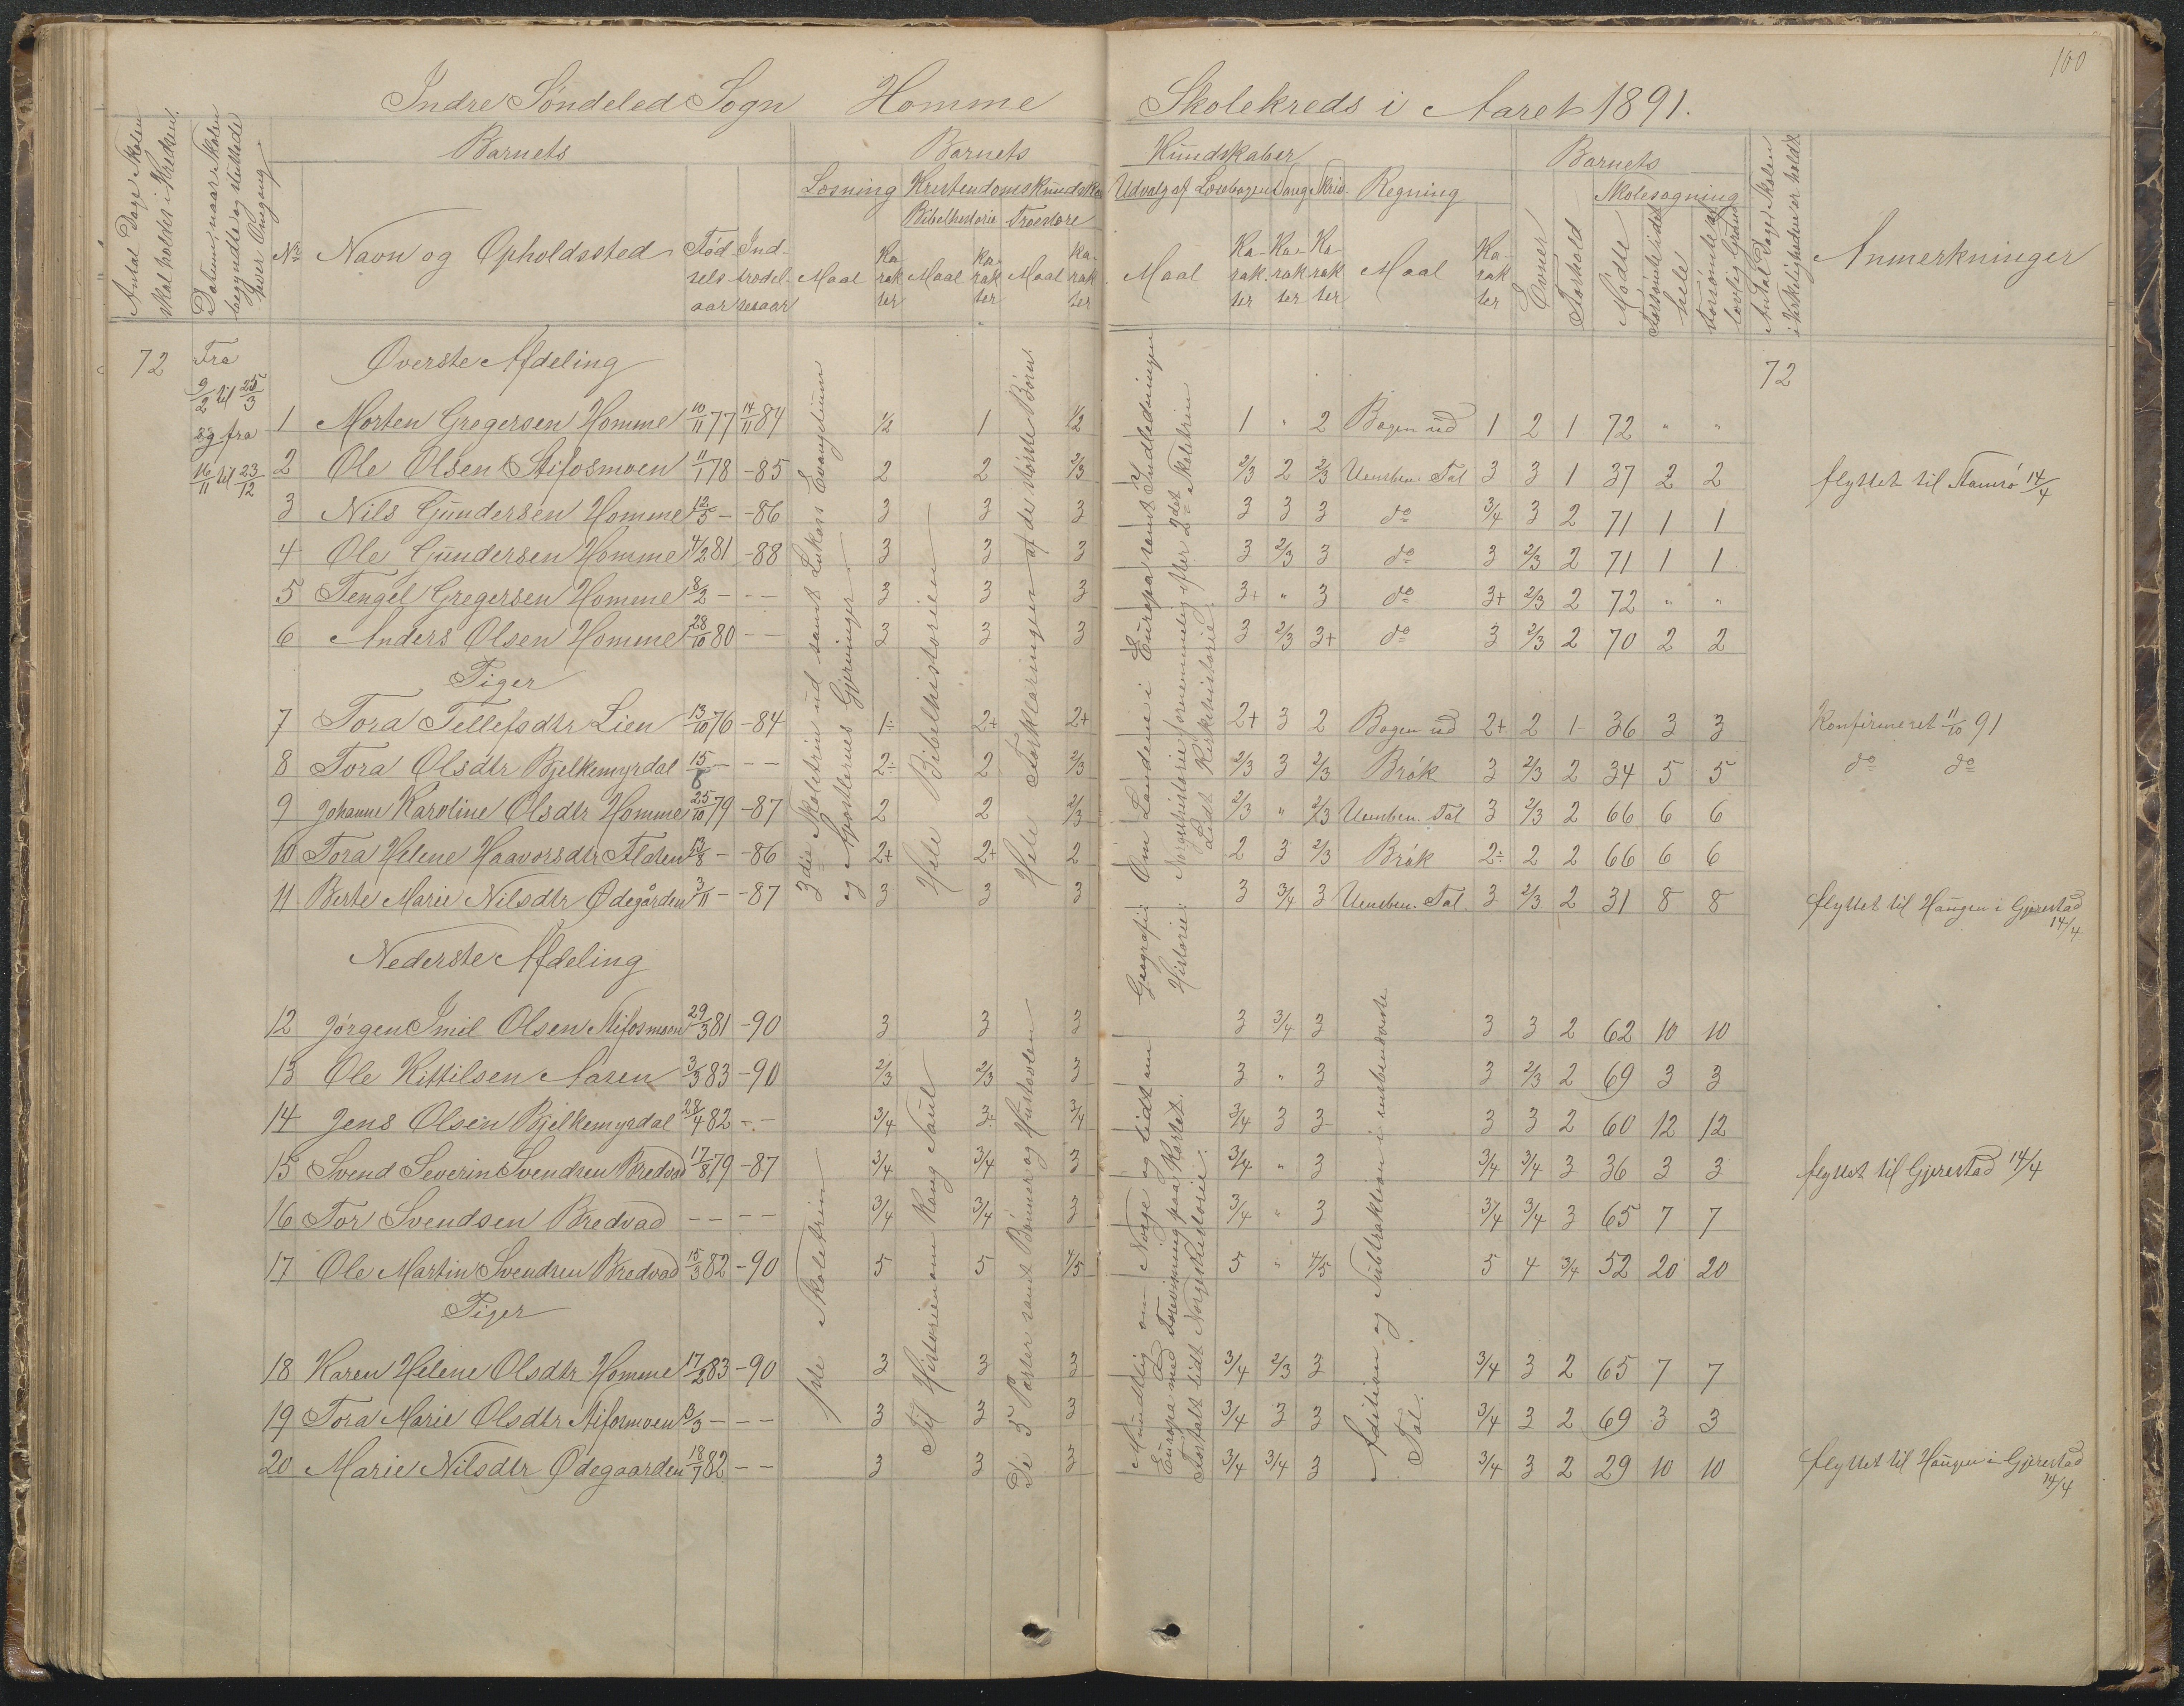 100
Indre Søndeled Sogn Homme Skolekreds i Aaret 1891.
Antal Dage Skolen skal holdes i Kredsen.
Datum, naar Skolen begyndte og sluttede hver Omgang
No
Barnets
Navn og Opholdssted
Fødselsaar
Indtrædelsesaar
Barnets Kundskaber
Læsning
Maal
Karakter
Kristendomskundskab
Bibelhistorie
Maal
Karakter
Troeslære
Maal
Karakter
Udvalg af Læsebogen
Maal
Karakter
Sang
Karakter
Skriv.
Karakter
Regning
Maal
Karakter
Barnets
Evner
Forhold
Skolesøgning
Mødte
Forsømte i det hele
Forsømte af lovlig Grund
Antal Dage Skolen i Virkeligheden er holdt
Anmerkninger
72
Fra
9/2 til 25/3
og fra
16/11 til 23/12
Øverste Afdeling
72
1 Morten Gregersen Homme 10/11 77 14/11 84 1/2 1 1/2 1 " 2 Bogen ud 1 2 1 72 " "
2 Ole Olsen Stifosmoen 11/1 78 -85 2 2 2/3 2/3 2 2/3 Uensben. Tal 3 3 1 37 2 2 flyttet til 14/4
3 Nils Gundersen Homme 12/5 - -86 3 3 3 3 3 3 do 3/4 3 2 71 1 1
4 Ole Gundersen Homme 4/2 81 -88 3 3 3 3 2/3 3 do 3 2/3 2 71 1 1
5 Tengel Gregersen Homme 8/2 - - - 3 3 3 3+ " 3 do 3+ 2/3 2 72 " "
6 Anders Olsen Homme 28/10 80 - - 3 3 3 3 2/3 3+ do 3 2/3 2 70 2 2
Piger
7 Tora Tellefsdtr Lien 13/10 76 -84 1÷ 2+ 2+ 2+ 3 2 Bogen ud 2+ 2 1 36 3 3 Konfirmeret 11/10 91
8 Tora Olsdtr Bjelkemyrdal 15/8 - - - 2÷ 2 2/3 2/3 3 2/3 Brøk 3 2/3 2 34 5 5 do do
9 Johanne Karoline Olsdtr Homme 25/10 79 -87 2 2 2/3 2/3 " 2/3 Uensben. Tal 3 2/3 2 66 6 6
10 Tora Helene Haavorsdtr 13/8 - -86 2+ 2+ 2 2 3 2/3 Brøk 2÷ 2 2 66 6 6
11 Berte Marie Nilsdtr Ødegården 3/11 - -87 3 3 3 3 3/4 3 Uensben. Tal 3 2/3 2 31 8 8 flyttet til Haugen i Gjerestad 14/4
3die Skoletrin ud samt Lukass Evangelium
og Apostlernes Gjerninger.
Hele Bibelhistorien
Hele Forklaringen af de største Børn.
Geografi: Om Landene i Europa samt Indledningen
Historie: Norgeshistorie fornemmelig efter 2det Skoletrin
Lidt Kirkehistorie.
Nederste Afdeling
12 Jørgen Emil Olsen Stifosmoen 29/3 81 -90 3 3 3 3 3/4 3 3 3 2 62 10 10
13 Ole Kittilsen Aasen 3/3 83 -90 2/3 2/3 3 3 " 3 3 2/3 2 69 3 3
14 Jens Olsen Bjelkemyrdal 28/4 82 - - 3/4 3÷ 3/4 3/4 3 3 3 3 2 60 12 12
15 Svend Severin Svendsen Bredvad 17/8 79 -87 3/4 3/4 3 3/4 " 3 3/4 3/4 3 36 3 3 flyttet til Gjerestad 14/4
16 Tor Svendsen Bredvad - - - - 3/4 3/4 3 3/4 " 3 3/4 3/4 3 65 7 7
17 Ole Martin Svendsen Bredvad 15/3 82 -90 5 5 4/5 5 " 4/5 5 4 3/4 52 20 20
Piger
18 Karen Helene Olsdtr Homme 17/2 83 -90 3 3 3 3/4 2/3 3 3/4 3 2 65 7 7
19 Tora Marie Olsdtr Stifosmoen 3/3 - - - 3 3 3 3/4 3 3 3/4 3 2 69 3 3
20 Marie Nilsdtr Ødegaarden 18/7 82 - - 3 3 3 3/4 3/4 3 3/4 3 2 29 10 10 flyttet til Haugen i Gjerestad 14/4
1ste Skoletrin
Til Historien om Kong Saul
De 5 Parter samt Bønner og Hustavlen
Mundtlig om Norge og lidt om
Europa med Forevisning paa Kartet.
Fortalt lidt Norgeshistorie.
Addition og Subtraktion i uensbenævnte
Tal.